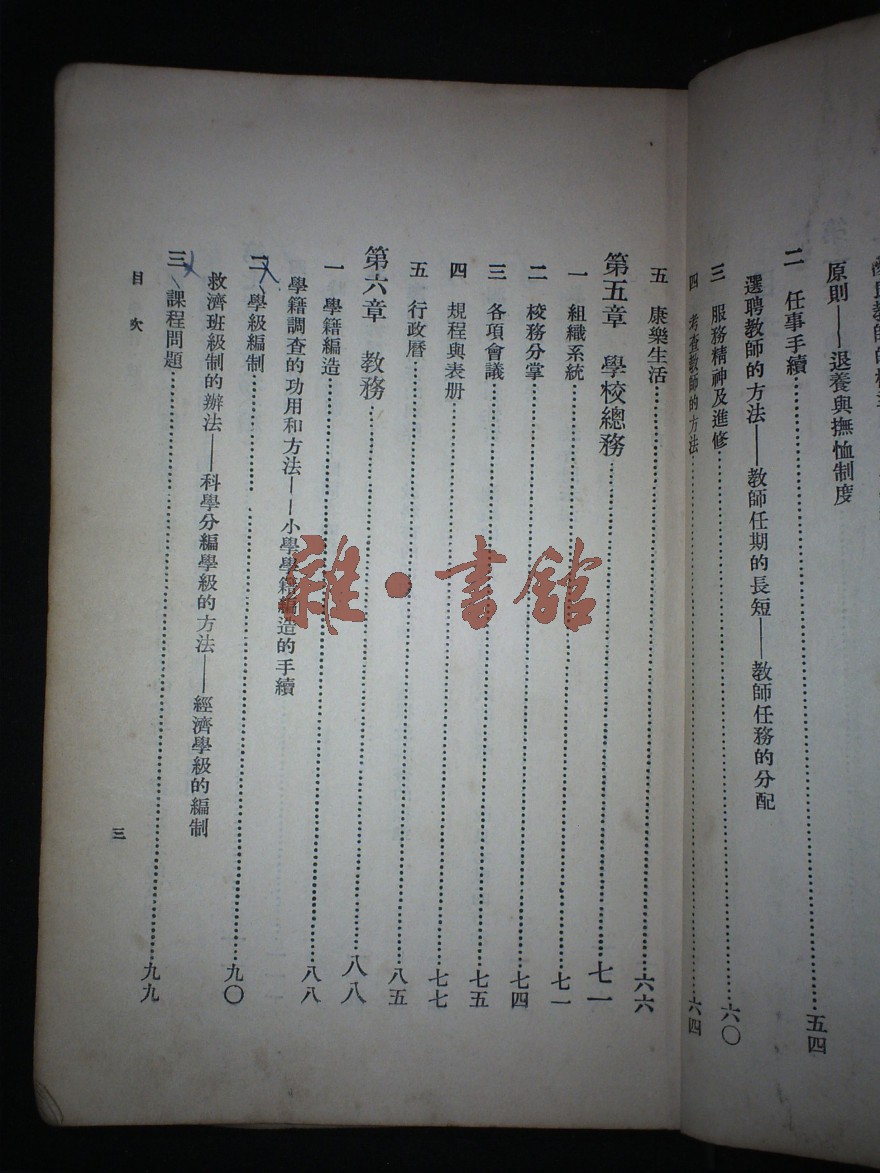 原則——退養與撫恤制度
二 任事手續……五四
選聘教師的方法——教師任期的長短——教師任務的分配
三 服務精神及進修……六〇
四 考查教師的方法……六四
五 康樂生活……六六
第五章 學校總務……七一
一 組織系統……七一
二 校務分掌……七四
三 各項會議……七五
四 規程與表册……七七
五 行政曆……八五
第六章 教務……八八
一 學籍編造……八八
學籍調查的功用和方法——小學學籍編造的手續
二 學級編制……九〇
救濟班級制的辦法——科學分編學級的方法——經濟學級的編制
三 課程問題……九九
目次
三
雜·書舘